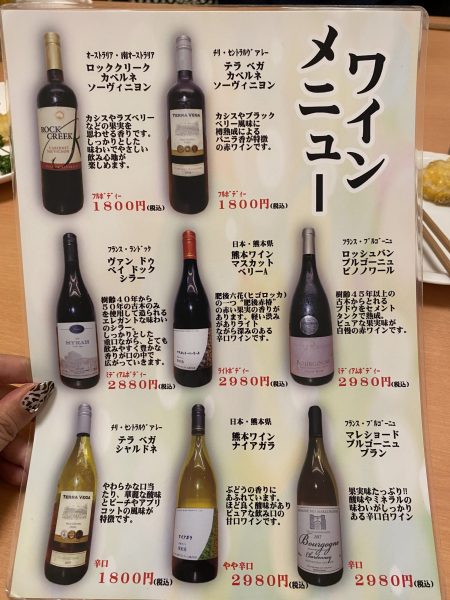 ワイン
メニュー
オーストラリア・南オーストラリア
ロッククリーク
カベルネ
ソーヴィニヨン
カシスやラズベリー
などの果実を
思わせる香りです。
しっかりとした
味わいでやさしい
飲み心地が
楽しめます。
フルボディー
1800円(税込)
チリ・セントラルヴァレー
テラ ベガ
カベルネ
ソーヴィニヨン
カシスやブラック
ベリー風味に
樽熟成による
バニラ香が特徴
の赤ワインです。
フルボディー
1800円(税込)
フランス・ランドック
ヴァン ドゥ
ペイ ドック
シラー
樹齢40年から
50年の古木のみ
を使用して造られる
エレガントな味わい
のシラー。
しっかりとした
重口ながら、とても
飲みやすく豊かな
香りが口の中で
広がっていきます。
ミディアムボディー
2880円(税込)
日本・熊本県
熊本ワイン
マスカット
ベリーA
肥後六花(ヒゴロッカ)
の一つ"肥後赤椿"
の赤い果実の香りが
あります。軽い渋み
がありライト
ながら深みのある
辛口ワインです。
ライトボディー
2980円(税込)
フランス・ブルゴーニュ
ロッシュバン
ブルゴーニュ
ピノノワール
樹齢45年以上の
古木からとれる
ブドウをセメント
タンクで熟成。
ピュアな果実味が
自慢の赤ワインです。
ミディアムボディー
2980円(税込)
チリ・セントラルヴァレー
テラ ベガ
シャルドネ
やわらかな口当
たり、華麗な酸味
とピーチやアプリ
コットの風味が
特徴です。
辛口
1800円(税込)
日本・熊本県
熊本ワイン
ナイアガラ
ぶどうの香りに
あふれています。
ほど良く酸味があり
ピュアな飲み口の
甘口ワインです。
やや辛口
2980円(税込)
フランス・ブルゴーニュ
マレショード
ブルゴーニュ
ブラン
果実味たっぷり!!
酸味やミネラルの
味わいがしっかり
ある辛口白ワイン
辛口
2980円(税込)
ROCK
CREEK
TERRA VEGA
SYRAH
BOURGOGNE
TERRA VEGA
ナイアガラ
Bourgogne
Chardonnay